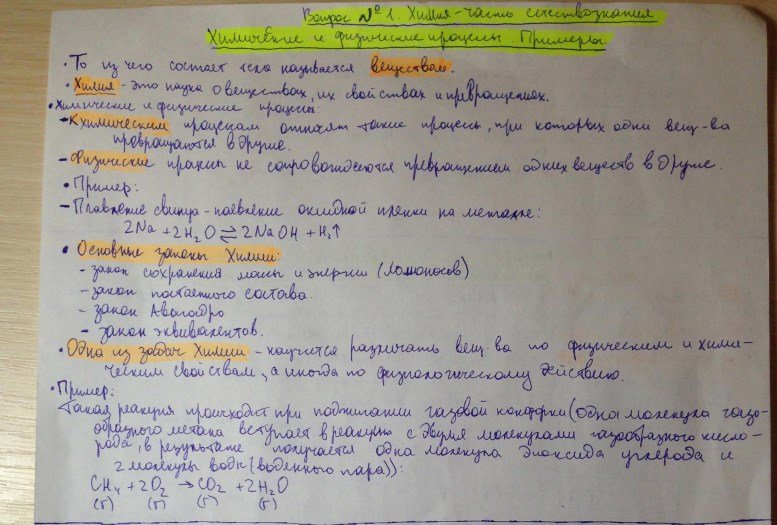 Вопрос №1. Химия - часть естествознания
Химические и физические процессы. Примеры
• То из чего состоит тела называется веществом.
• Химия - это наука о веществах, их свойствах и превращениях.
• Химические и физические процессы
- К химическим процессам относят такие процессы, при которых одни вещ-ва
превращаются в другие.
- Физические процессы не сопровождаются превращением одних веществ в другие.
• Пример:
- Плавление свинца - появление оксидной пленки на металле:
2Na + 2H₂O ⇌ 2NaOH + H₂↑
• Основные законы Химии:
- закон сохранения массы и энергии (Ломоносов)
- закон постоянного состава.
- закон Авогадро
- закон эквивалентов.
• Одна из задач Химии - научится различать вещ-ва по физическим и хими-
ческим свойствам, а иногда по физиологическому действию.
• Пример:
Такая реакция происходит при поджигании газовой конфорки (одна молекула газо-
образного метана вступает в реакцию с двумя молекулами газообразного кисло-
рода, в результате получается одна молекула диоксида углерода и
2 молекулы воды (водяного пара)):
CH₄ + 2O₂ → CO₂ + 2H₂O
(г) (г) (г) (г)